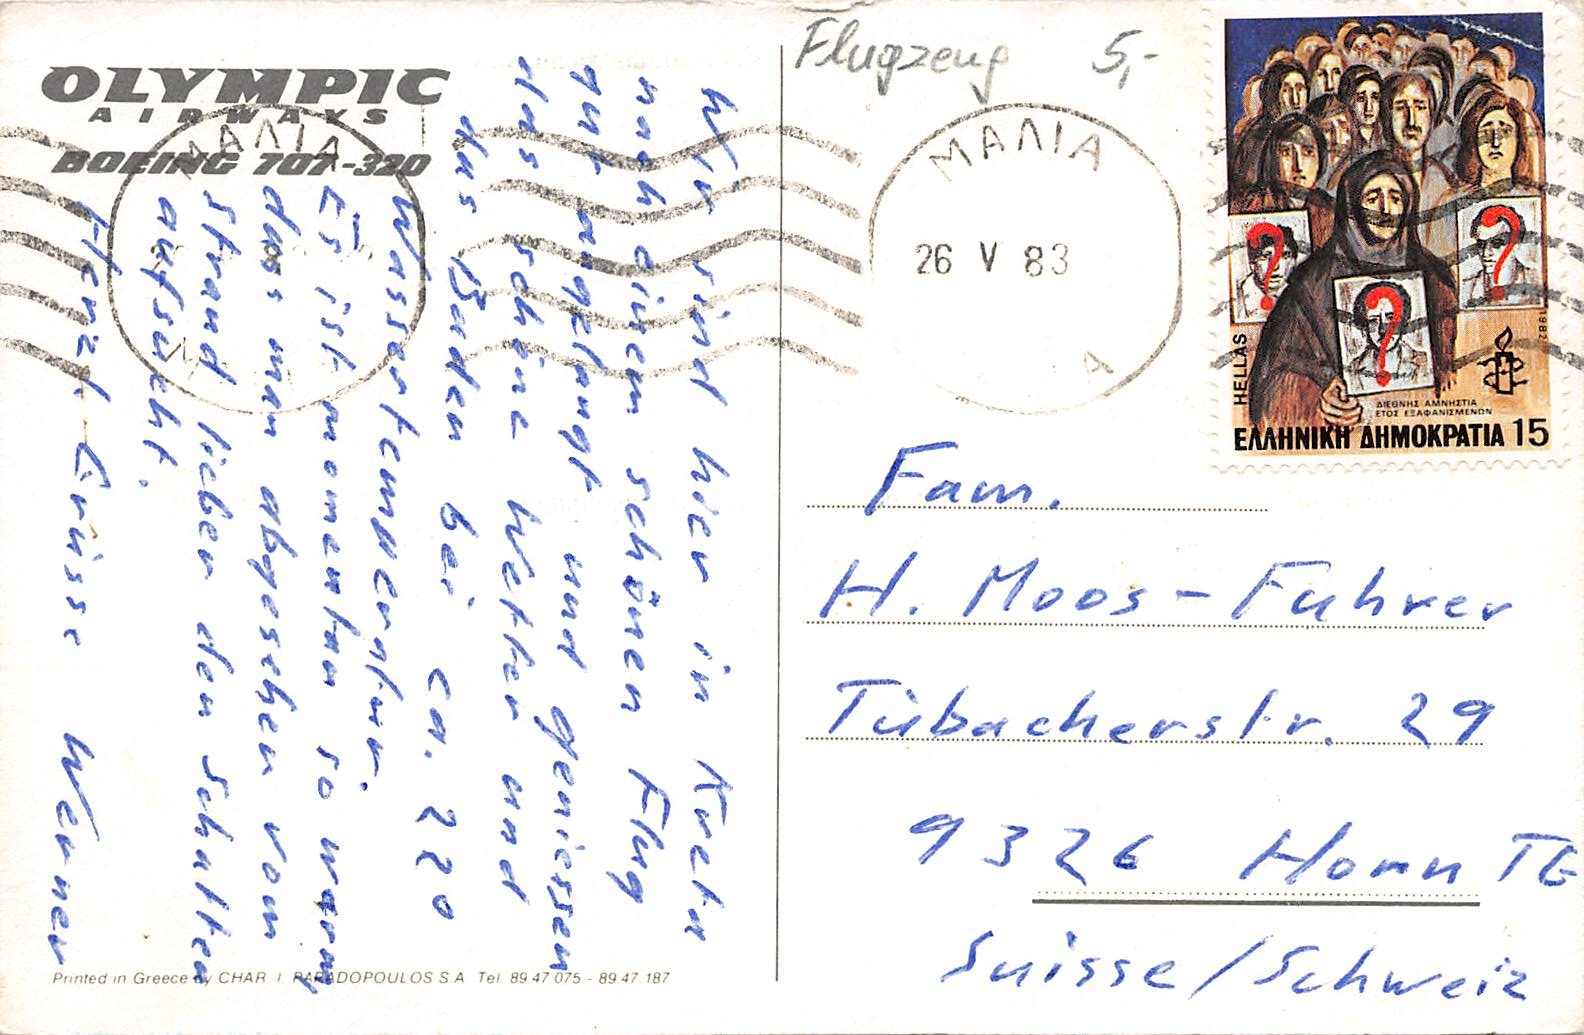 OLYMPIC
AIRWAYS
BOEING 707-320
Wir sind hier in Kreta
nach einem schönen Flug
gut angelangt und geniessen
das schöne Wetter und
das Baden bei ca. 22°
Wassertemperatur.
Es ist momentan so warm
dass man abgesehen vom
Strand lieber den Schatten
aufsucht.
Herzl. Grüsse Werner
Printed in Greece by CHAR. I. PAPADOPOULOS S.A. Tel. 89 47 075 - 89 47 187
Flugzeug 5,-
ΜΑΛΙΑ
ΜΑΛΙΑ
26 V 83
Α
HELLAS
1982
ΔΙΕΘΝΗΣ ΑΜΝΗΣΤΙΑ
ΕΤΟΣ ΕΞΑΦΑΝΙΣΜΕΝΩΝ
ΕΛΛΗΝΙΚΗ ΔΗΜΟΚΡΑΤΙΑ 15
Fam.
H. Moos-Fuhrer
Tübacherstr. 29
9326 Horn TG
Suisse/Schweiz